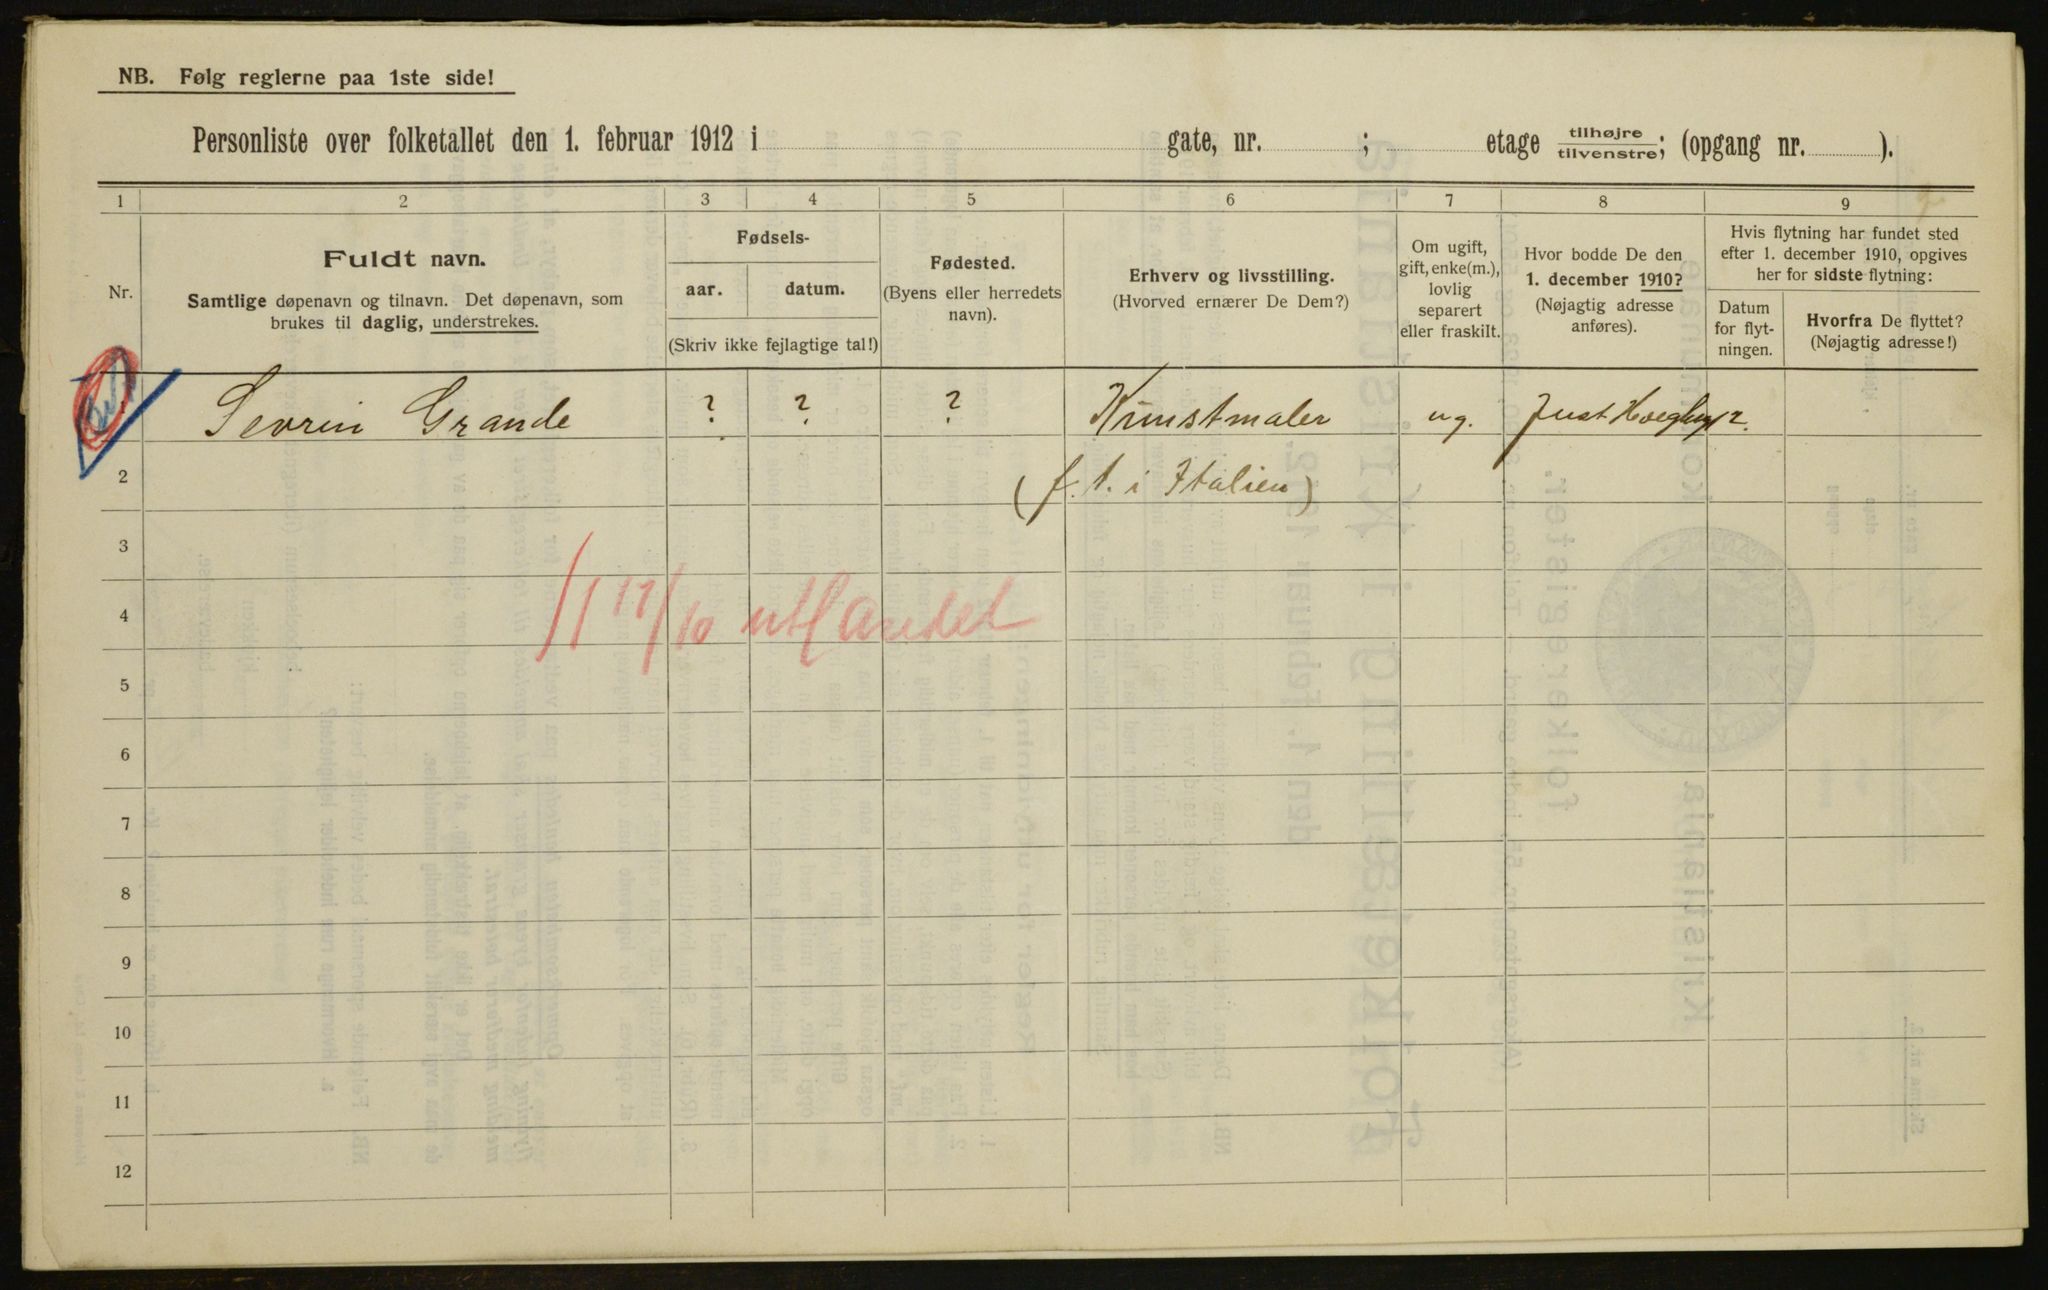 NB. Følg reglerne paa 1ste side!
Personliste over folketallet den 1. februar 1912 i gate, nr. ; etage tilhøjre/tilvenstre; (opgang nr. ).
1 2 3 4 5 6 7 8 9
Nr.
Fuldt navn.
Samtlige døpenavn og tilnavn. Det døpenavn, som
brukes til daglig, understrekes.
Fødsels-
aar. datum.
(Skriv ikke fejlagtige tal!)
Fødested.
(Byens eller herredets
navn).
Erhverv og livsstilling.
(Hvorved ernærer De Dem?)
Om ugift,
gift, enke(m.),
lovlig
separert
eller fraskilt.
Hvor bodde De den
1. december 1910?
(Nøjagtig adresse
anføres).
Hvis flytning har fundet sted
efter 1. december 1910, opgives
her for sidste flytning:
Datum
for flyt-
ningen.
Hvorfra De flyttet?
(Nøjagtig adresse!)
1 Sevrin Grande ? ? ? Kunstmaler ug. Just
2 (f. t. i Italien)
3
4 17/10 utlandet
5
6
7
8
9
10
11
12